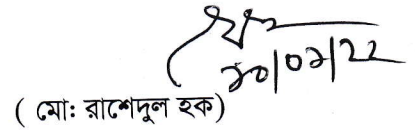 ২০/০২/২২
( মোঃ রাশেদুল হক)